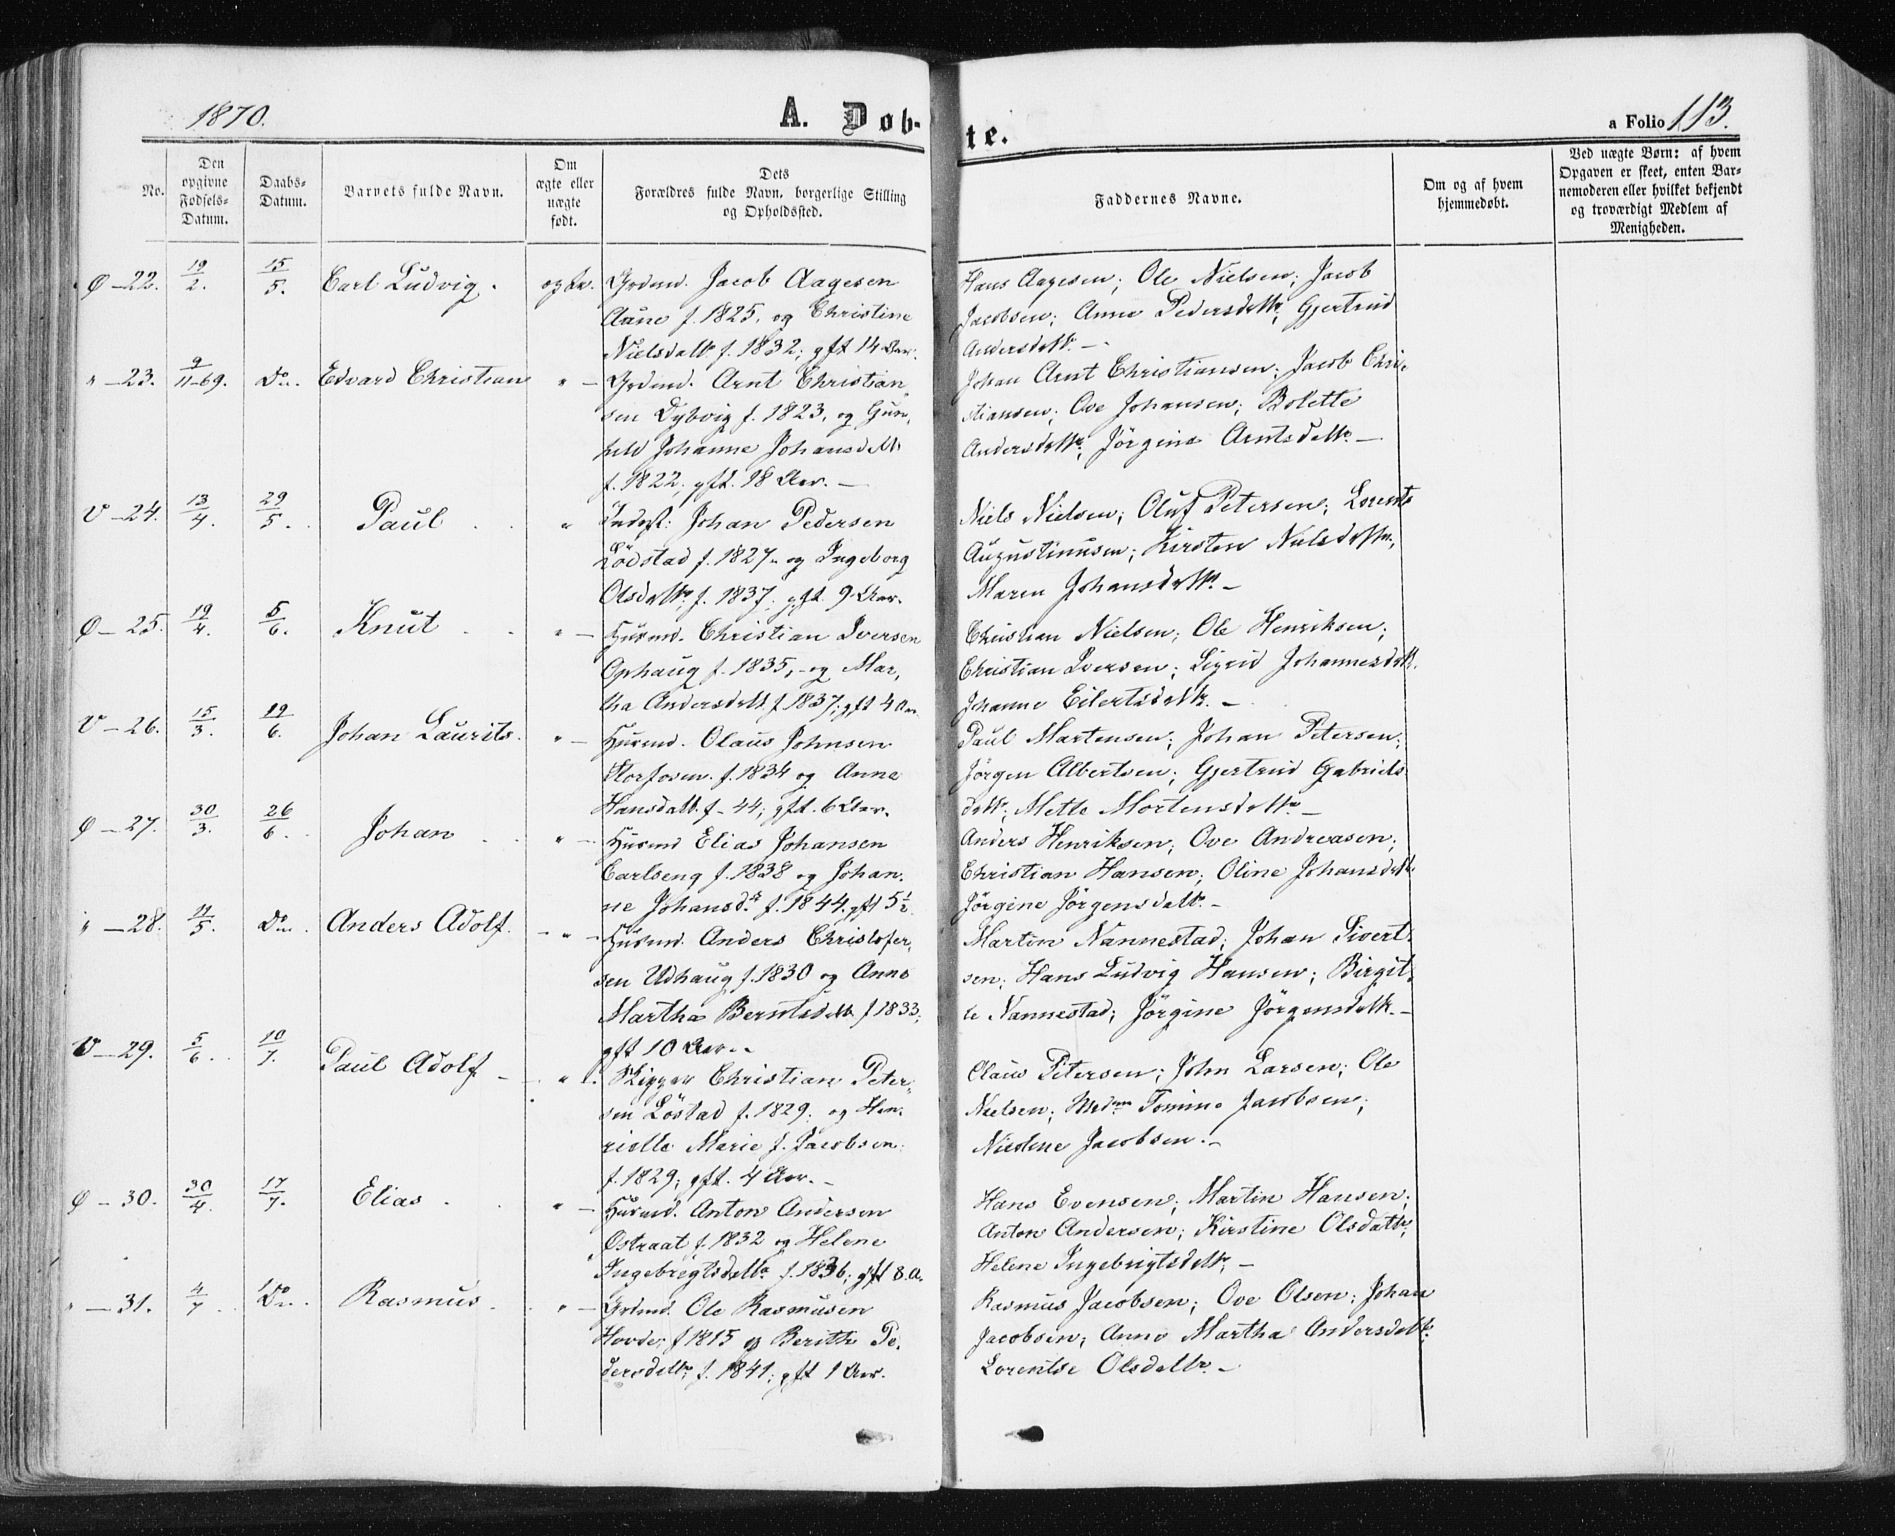 1870.
A. Døb-
te.
a Folio 113.
No.
Den opgivne Fødsels-Datum.
Daabs-Datum.
Barnets fulde Navn.
Om ægte eller uægte født.
Dets Forældres fulde Navn, borgerlige Stilling og Opholdssted.
Faddernes Navne.
Om og af hvem hjemmedøbt.
Ved uægte Børn: af hvem Opgaven er skeet, enten Barnemoderen eller hvilket bekjendt og troværdigt Medlem af Menigheden.
Ø - 22. 19/2. 15/5. Carl Ludvig. ægte. Grdmd. Jacob Aagesen
Aune f. 1825, og Christine
Nielsdattr f. 1832; gft 14 Aar.
Hans Aagesen; Ole Nielsen; Jacob
Jacobsen; Anne Pedersdattr; Gjertrud
Andersdattr. -
" - 23. 9/11-69. Do. Edvard Christian " - Grdmd. Arnt Christian
sen Dybvig f. 1823, og Gun,
hild Johanne Johansdattr
f. 1822, gft. 18 Aar. -
Johan Arnt Christiansen; Jacob Chri-
stiansen; Ove Johansen; Bolette
Andersdattr; Jörgine Arntsdattr -
V - 24. 13/4. 29/5. Paul " Inderst: Johan Pedersen
Lödstad f. 1827 og Ingeborg
Olsdattr: f. 1837; gft. 9 Aar.
Niels Nielsen; Oluf Petersen; Lorents
Augustinusen; Kirsten Nielsdattr;
Maren Johansdattr -
Ø - 25. 19/4. 5/6. Knut " - Husmd. Christian Iversen
Ophaug f. 1835, og Mar,
tha Andersdatt f 1837; gft 4 Aar
Christian Nielsen; Ole Henriksen;
Christian Iversen; Sigrid Johannesdattr.
Johanne Eilertsdattr. -
V - 26. 15/3. 19/6. Johan Laurits. " - Husmd. Olaus Johnsen
Storfosen. f. 1834 og Anna
Hansdatt. f - 44; gft. 6 Aar.
Paul Martensen; Johan Petersen;
Jörgen Albertsen; Gjertrud Gabriels
dattr; Mette Mortensdattr -
Ø - 27. 30/3. 26/6. Johan " - Husmd Elias Johansen
Carlseng f. 1838 og Johan.
ne Johansdr f. 1844. gft 5 1/2
Anders Henriksen; Ove Andreasen;
Christian Hansen; Oline Johansdattr
Jörgine Jörgensdattr. -
" - 28. 11/5. Do. Anders Adolf. - " - Husmd. Anders Christofer,
sen Udhaug f. 1830 og Anne
Martha Berntsdattr f 1833;
gft 10 Aar. -
Martin Nannestad; Johan Sivert-
sen; Hans Ludvig Hansen; Birgit-
te Nannestad; Jörgine Jörgensdattr. -
V - 29. 5/6. 10/7. Paul Adolf - " Christian Peter-
sen Löstad f. 1829. og Hen,
riette Marie f. Jacobsen
f. 1829; gft. 4 Aar. -
Claus Petersen; John Larsen; Ole
Nielsen; Jacobsen;
Jacobsen. -
Ø - 30. 30/4. 17/7. Elias " - Husmd. Anton Andersen
Østraat f. 1832 og Helene
Ingebregtsdattr f. 1836; gft 8. A.
Hans Evensen; Martin Hansen;
Anton Andersen; Kirstine Olsdattr;
Helene Ingebrigtsdattr, -
" - 31. 4/7. Do. Rasmus. " - Grdmd. Ole Rasmusen
Hovde, f 1815 og Berith Pe,
dersdattr f. 1841; gft 1 Aar.
Rasmus Jacobsen; Ove Olsen; Johan
Jacobsen; Anne Martha Andersdattr;
Lorentse Olsdattr -